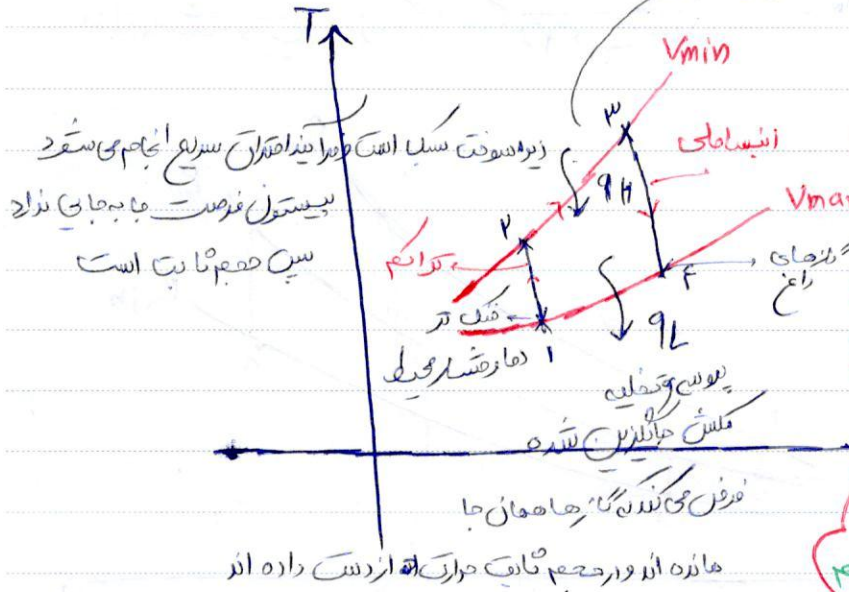 T
Vmin
۳
انبساطی
زیرا سوخت سبک است و فرآیند احتراق سریع انجام می شود
qH
پیستون فرصت جا به جایی ندارد
۲
تراکم
پس حجم ثابت است
گازهای داغ
۴
خنک تر
۱
qL
دما و فشار محیط
پروسه تخلیه
مکش جایگزین شده
فرض می کند که گازها همان جا
مانده اند و در حجم ثابت حرارت از دست داده اند